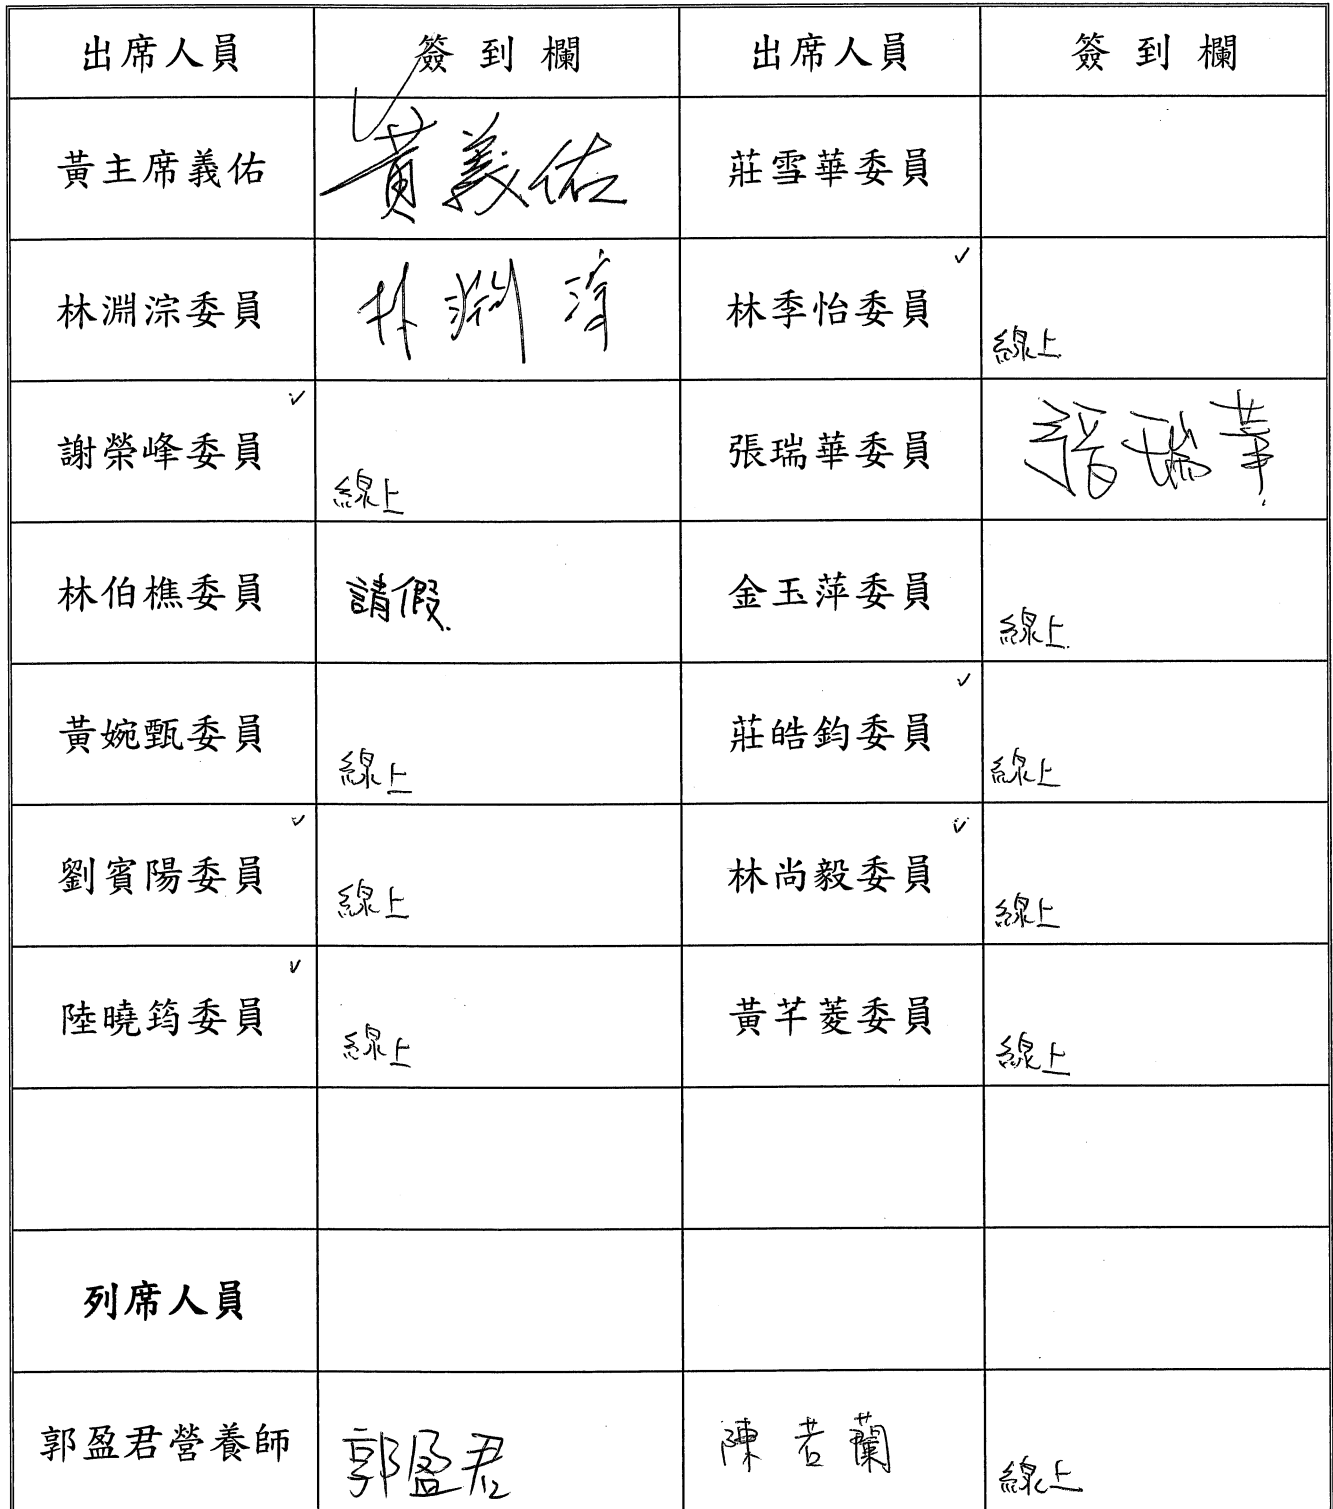 出席人員 簽到欄 出席人員 簽到欄
黃主席義佑 黃義佑 莊雪華委員
林淵淙委員 林淵淙 林季怡委員 ✓ 線上
謝榮峰委員 ✓ 線上 張瑞華委員 張瑞華
林伯樵委員 請假. 金玉萍委員 線上
黃婉甄委員 線上 莊皓鈞委員 ✓ 線上
劉賓陽委員 ✓ 線上 林尚毅委員 ✓ 線上
陸曉筠委員 ✓ 線上 黃芊菱委員 線上
列席人員
郭盈君營養師 郭盈君 陳若蘭 線上